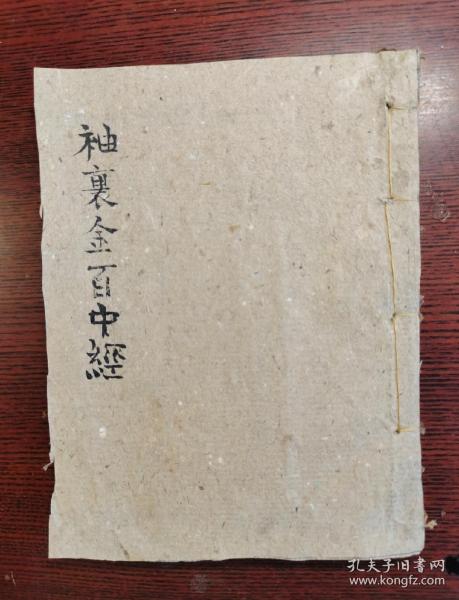 袖裏金百中經
孔夫子旧书网
www.kongfz.com